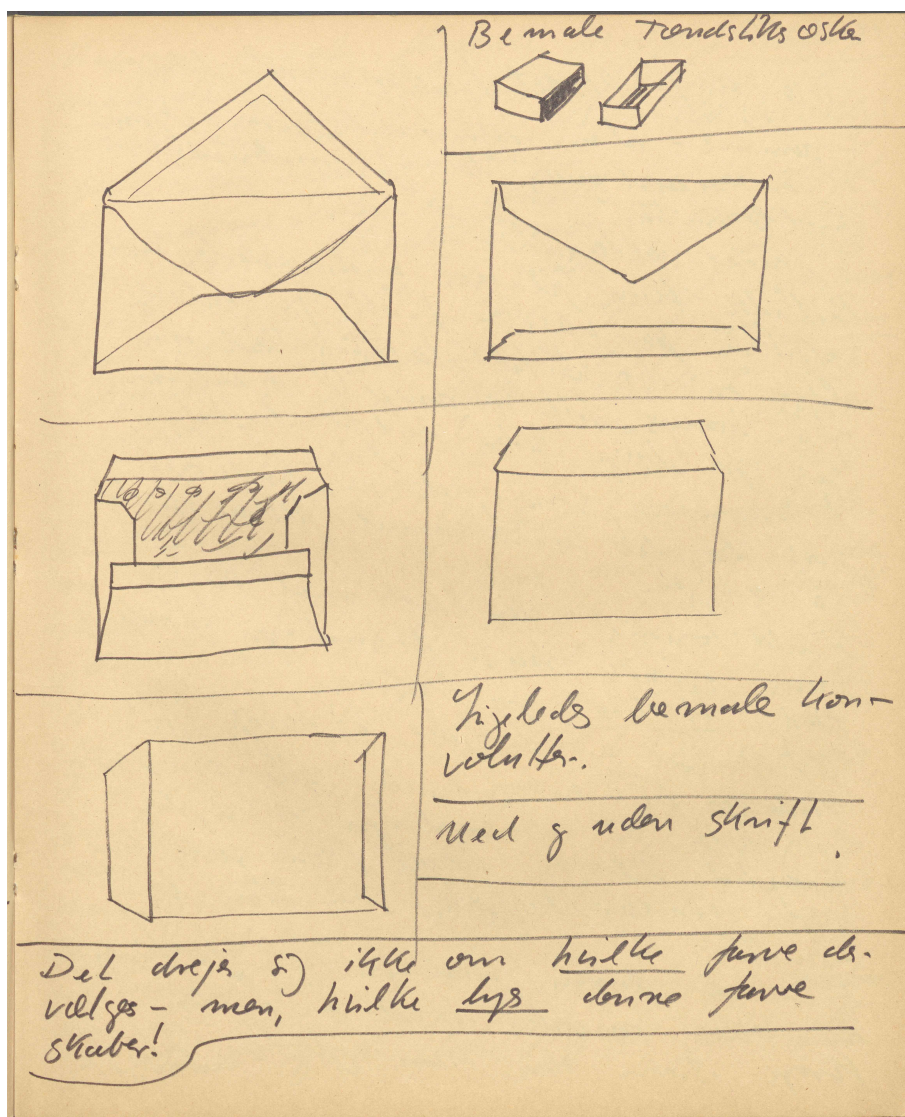 Bemale Tændstiksæske
Ligeledes bemale kon-
volutter.
Med og uden skrift.
Det drejer sig ikke om hvilke farve der
vælges - men, hvilke lys denne farve
skaber!